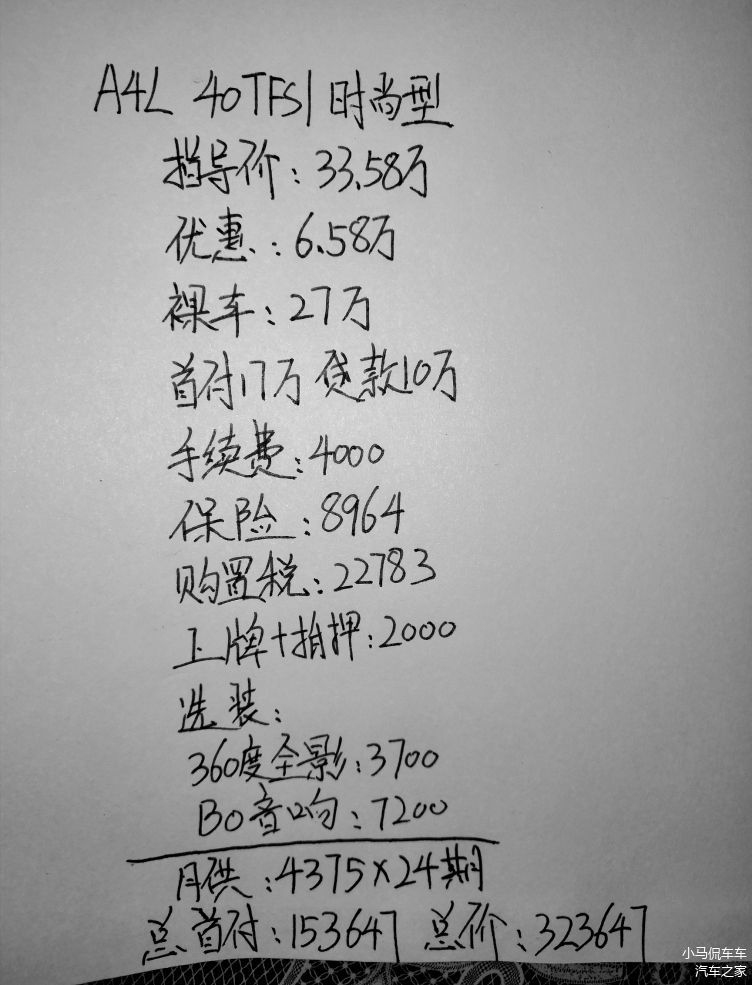 A4L 40TFSI 时尚型
指导价:33.58万
优惠:6.58万
裸车:27万
首付17万 贷款10万
手续费:4000
保险:8964
购置税:22783
上牌+抵押:2000
选装:
360度全影:3700
BO音响:7200
月供:4375×24期
总首付:153647 总价:323647
小马侃车车
汽车之家